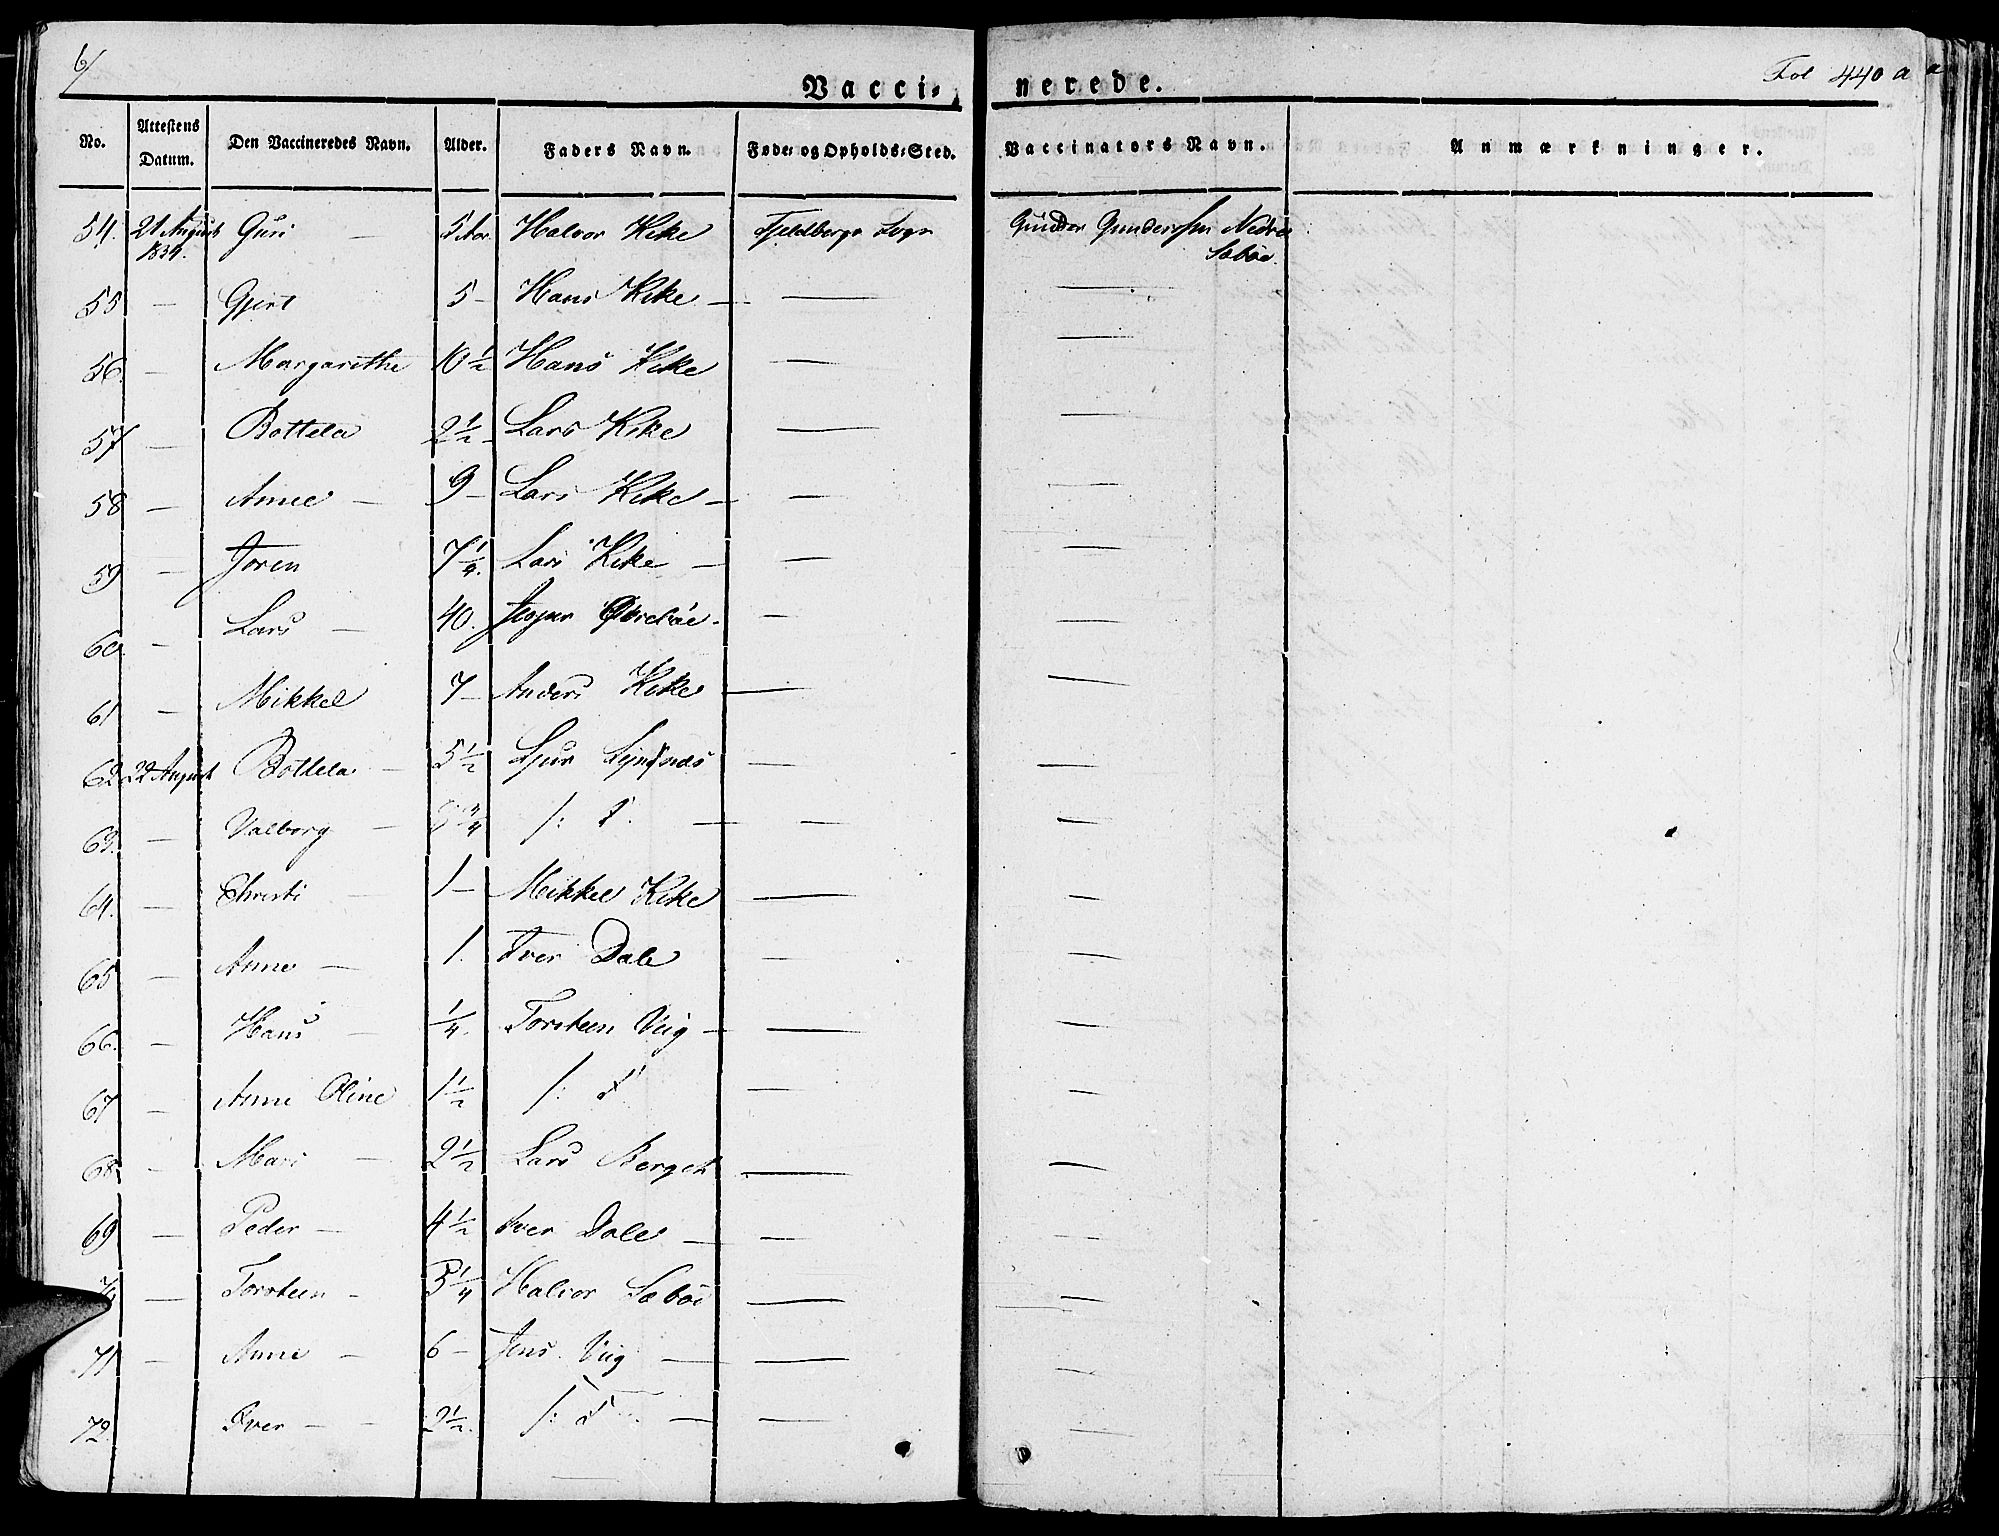 6/
Vacci- nerede.
Fol 440 a a
No. Attestens Datum. Den Vaccineredes Navn. Alder. Faders Navn. Føde- og Opholds-Sted. Vaccinators Navn. Anmærkninger.
54. 21 August 1834. Guri — 5 Aar. Halvor Kike Fjeldbergs Sogn Gunder Gundersen Nedre Sæbøe.
55 — Gjert 5 — Hans Kike — — —
56. — Margarethe 10 1/2 Hans Kike — —
57 — Bottela 2 1/2 — Lars Kike — —
58 — Anne — 9 — Lars Kike — — —
59 — Joren 7 1/4. Lars Kike — — —
60. — Lars — 40. Jesper — —
61 — Mikkel 7 — Anders Kike — — —
62. 22 August Bottela — 5 1/2 Sjur — —
63. — Valborg — 3/4 /: d. — — —
64. — Christi — 1 — Mikkel Kike — —
65 — Anne — 1. Iver Dale — —
66. — Hans — 1/4. Torsteen Viig — — —
67 — Anne Oline 1 1/2 /: d — —
68. — Mari — 2 1/2 Lars Berget — —
69 — Peder — 4 1/2 Iver Dale — — —
— Torsteen — 5 1/4 Halvor Sæbøe — —
71 — Anne — 6 — Jens Viig — — —
72. Iver — — 2 1/2. /: d — — —